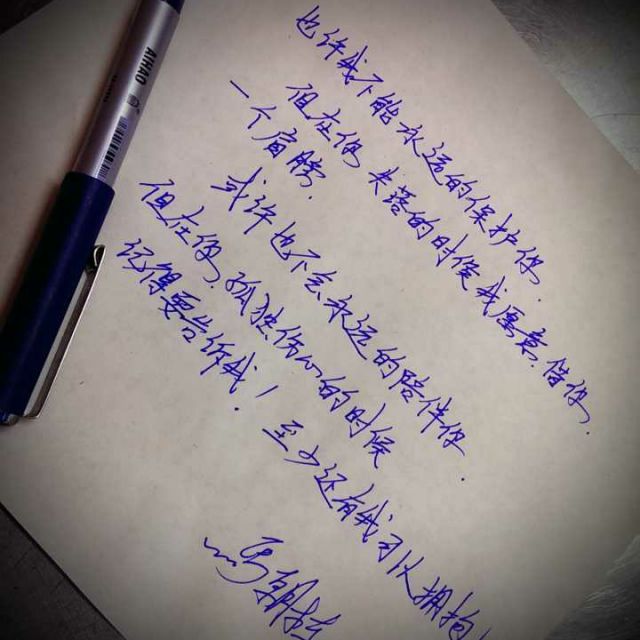 AIHAO
也许我不能永远的保护你.
但在你失落的时候我愿意借你
一个肩膀.
或许也不会永远的陪伴你.
但在你孤独伤心的时候
记得要告诉我！
至少还有我可以拥抱